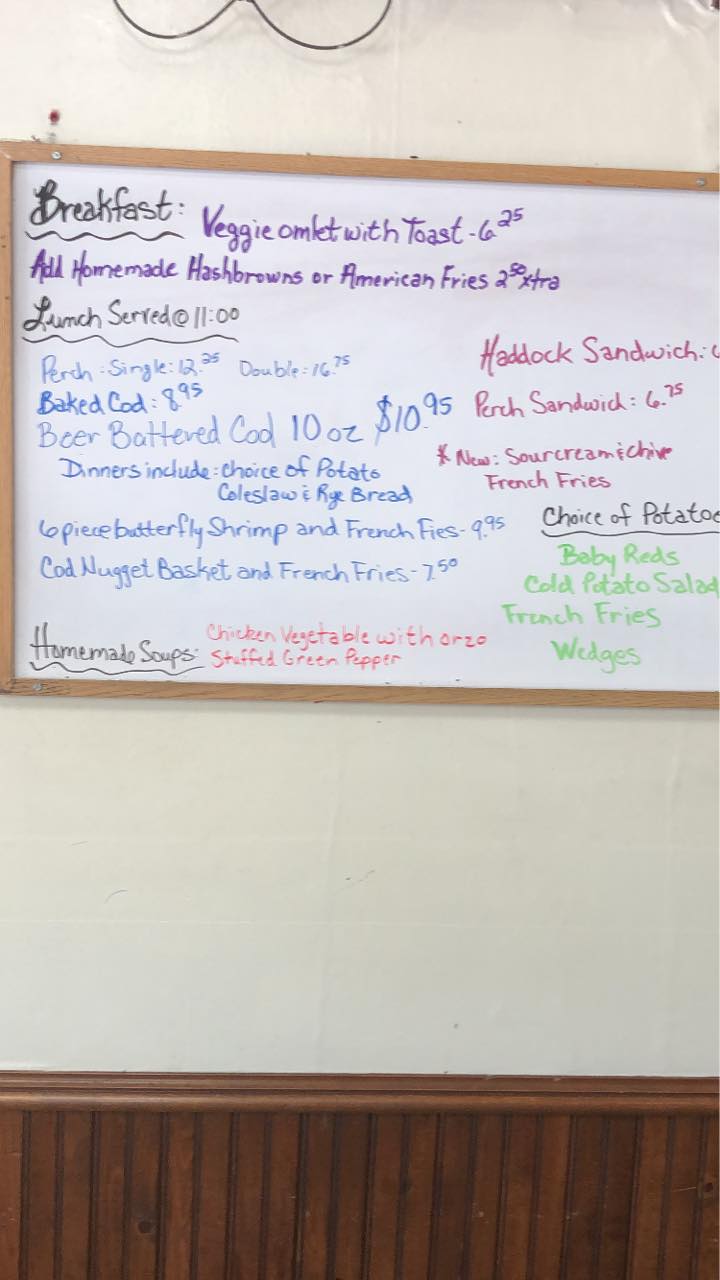 Breakfast: Veggie omlet with Toast - 6.25
Add Homemade Hashbrowns or American Fries 2.50 xtra
Lunch Served @ 11:00
Perch: Single: 12.25 Double: 16.75
Baked Cod: 8.95
Beer Battered Cod 10 oz $10.95
Dinners include: choice of Potato
Coleslaw & Rye Bread
6 piece butterfly Shrimp and French Fies - 9.95
Cod Nugget Basket and French Fries - 7.50
Homemade Soups: Chicken Vegetable with orzo
Stuffed Green Pepper
Haddock Sandwich:
Perch Sandwich: 6.75
* New: Sourcream & Chive
French Fries
Choice of Potatoe
Baby Reds
Cold Potato Salad
French Fries
Wedges